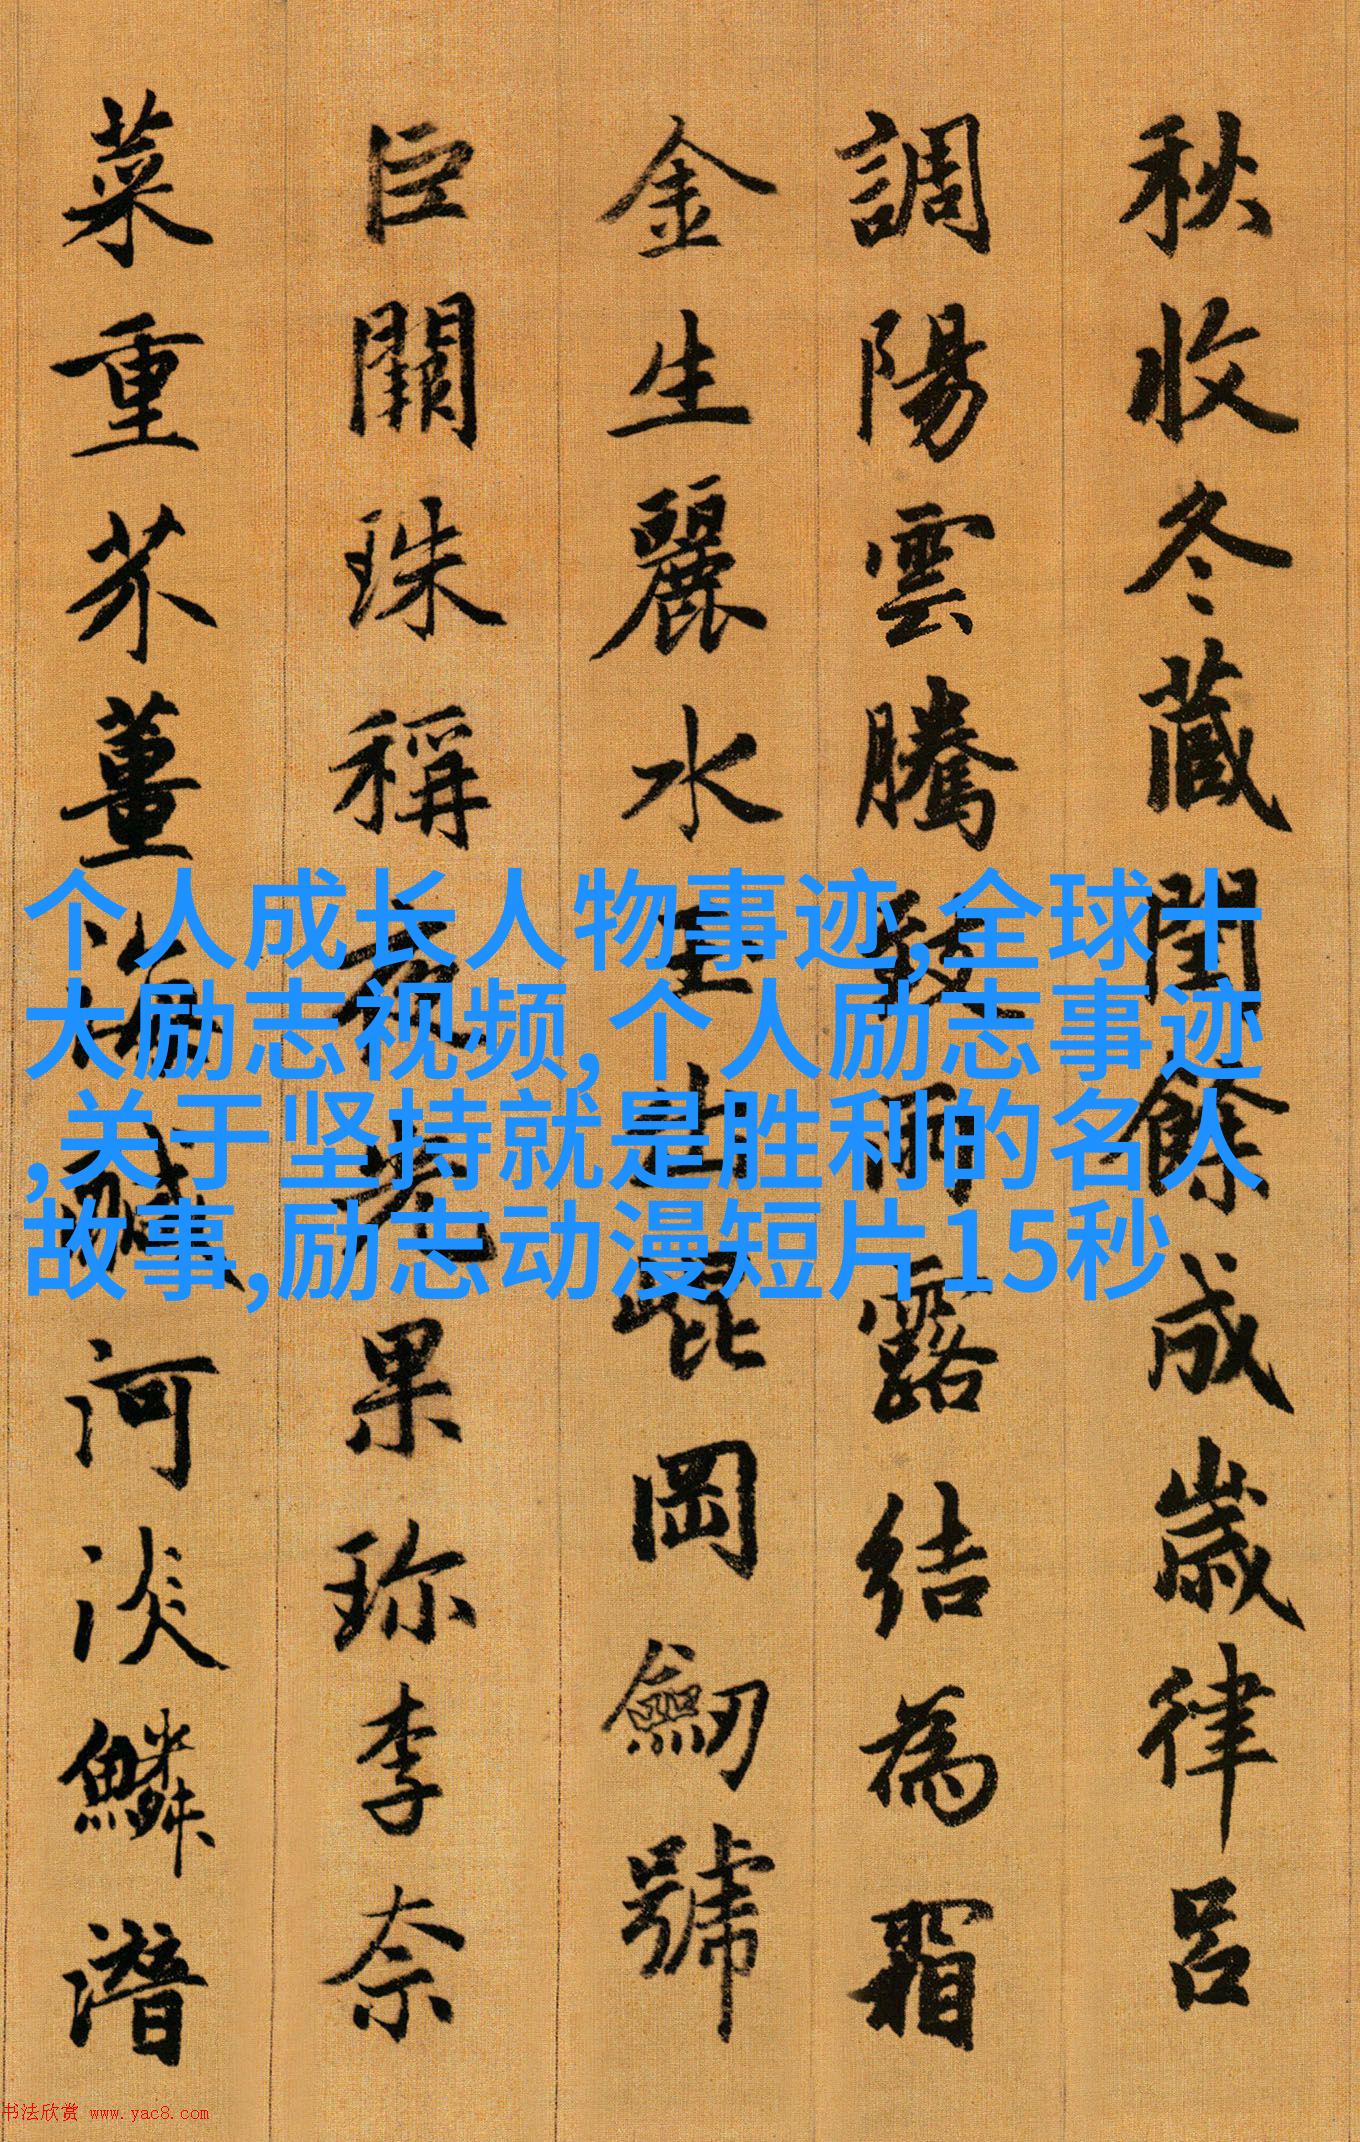 秋收冬藏閏餘成歲律呂
調陽雲騰致雨露結為霜
金生麗水玉出崑岡劒號
巨闕珠稱夜光果珍李奈
菜重芥薑海鹹河淡鱗潛
个人成长人物事迹,全球十
大励志视频,个人励志事迹
,关于坚持就是胜利的名人
故事,励志动漫短片15秒
书法欣赏 www.yac8.com